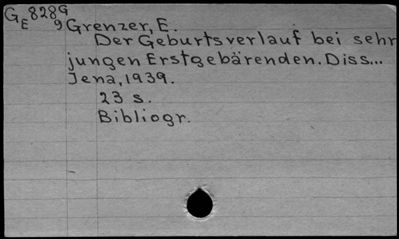 GE 828G
9 Grenzer, E.
Der Geburtsverlauf bei sehr
jungen Erstgebärenden. Diss...
Jena, 1939.
23 s.
Bibliogr.